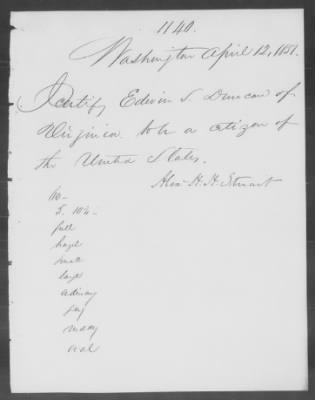 1140.
Washington April 12, 1851.
I certify Edwin S. Duncan of
Virginia to be a citizen of
the United States.
Alex. H. H. Stuart
60 –
5. 10½ –
full
hazel
small
large
ordinary
grey
ruddy
oval